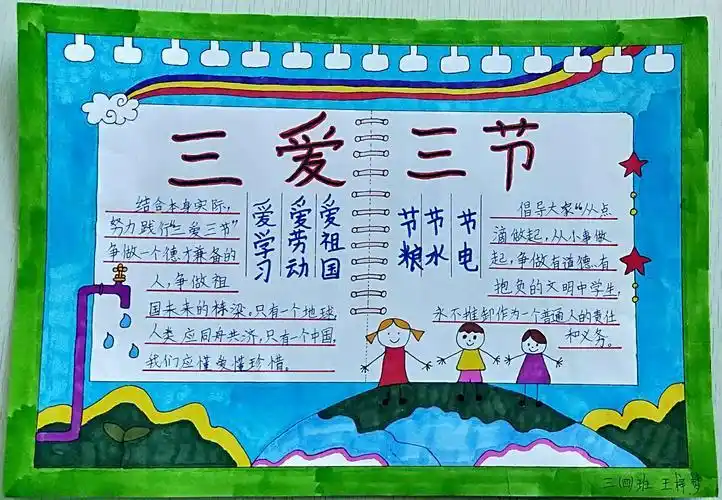 三爱三节
结合本身实际,
努力践行“三爱三节”
争做一个德才兼备的
人,争做祖
国未来的栋梁。只有一个地球,
人类应同舟共济,只有一个中国,
我们应懂爱懂珍惜。
爱学习
爱劳动
爱祖国
节粮
节水
节电
倡导大家“从点
滴做起,从小事做
起,争做有道德、有
抱负的文明中学生,
永不推卸作为一个普通人的责任
和义务。
三(四)班 王梓梦